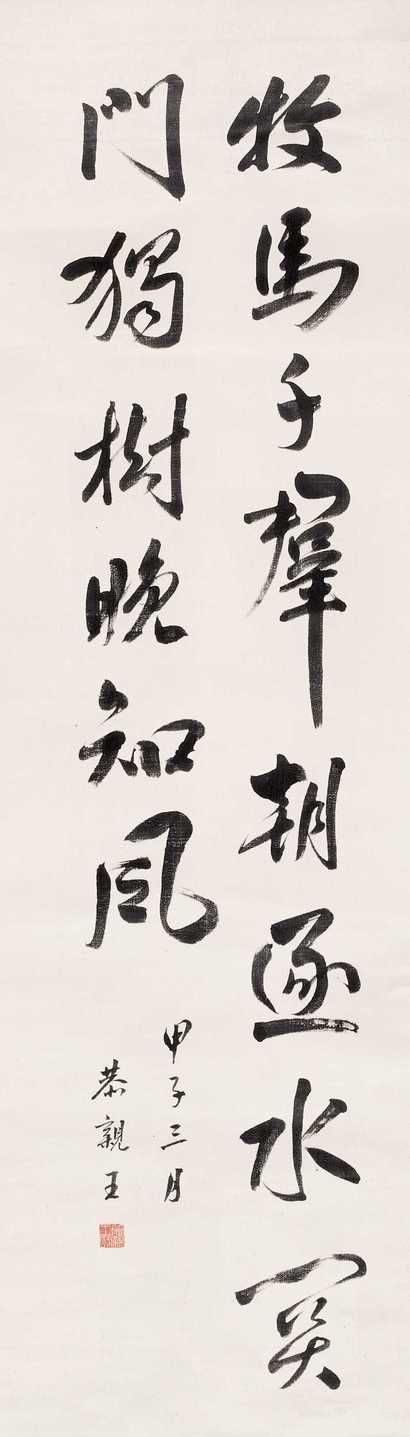 牧馬千羣朝逐水関
門獨樹晚知風
甲子三月
恭親王